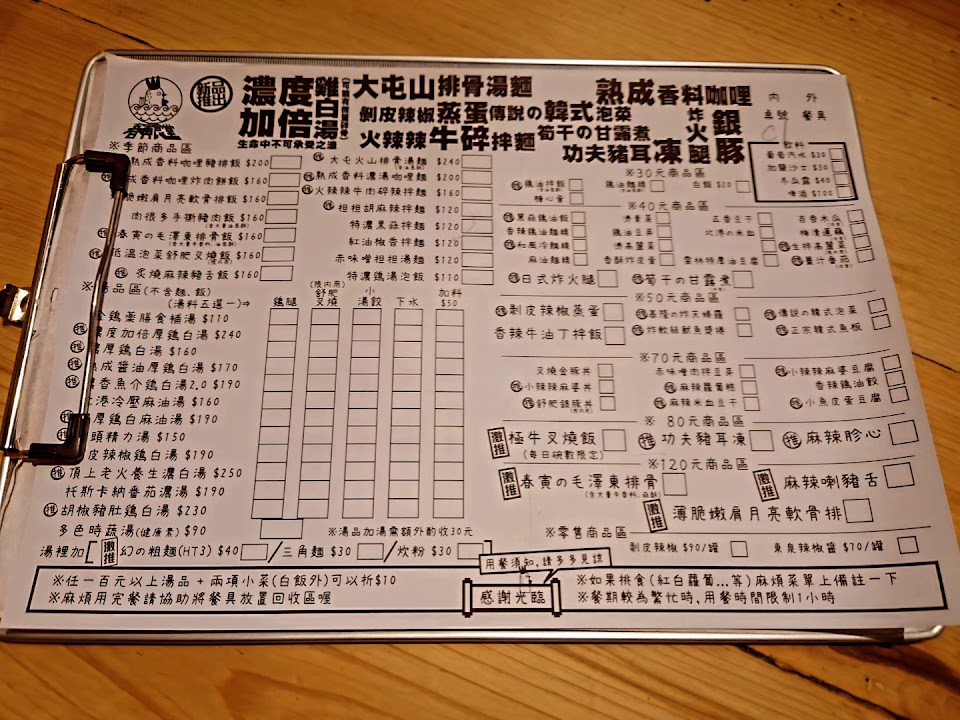 新品推出
濃度加倍雞白湯
生命中不可承受之濃
大屯山排骨湯麵
剝皮辣椒蒸蛋 傳說の韓式泡菜
火辣辣牛碎拌麵 筍干の甘露煮
熟成香料咖哩
炸火腿
功夫豬耳凍
銀豚
內 外
桌號 餐具
C1
飲料
葡萄汽水 $30
加鹽沙士 $30
冬瓜露 $40
啤酒 $100
※季節商品區
熟成香料咖哩豬排飯 $200
成香料咖哩炸肉餅飯 $160
脆嫩肩月亮軟骨排飯 $160
肉很多手撕豬肉飯 $160
春寅の毛澤東排骨飯 $160
低溫泡菜舒肥叉燒飯 $160
炙燒麻辣豬舌飯 $160
大屯火山排骨湯麵 $240
熟成香料濃湯咖哩麵 $200
火辣辣牛肉碎辣拌麵 $160
担担胡麻辣拌麵 $120
特濃黑蒜拌麵 $120
紅油椒香拌麵 $120
赤味噌担担湯麵 $120
特濃鷄湯泡飯 $110
※湯品區(不含麵、飯)
(湯料五選一)⇒
雞腿
(限內用)
舒肥叉燒
小湯餃
下水
加料 $50
全鷄藥膳食補湯 $110
濃度加倍厚鷄白湯 $240
濃厚鷄白湯 $160
熟成醬油厚鷄白湯 $170
濃香魚介鷄白湯2.0 $190
北港冷壓麻油湯 $160
厚鷄白麻油湯 $190
頭精力湯 $150
皮辣椒鷄白湯 $190
推 頂上老火養生濃白湯 $250
托斯卡納番茄濃湯 $190
推 胡椒豬肚鷄白湯 $230
多色時蔬湯(健康素) $90
※湯品加湯需額外酌收30元
湯裡加【激推 幻の粗麵(HT3) $40 /三角麵 $30 /炊粉 $30
※30元商品區
鷄油拌飯
鷄油麵線
白飯 $20
糖心蛋
※40元商品區
黑蒜鷄油飯
香辣鷄油麵線
和風冷麵線
麻油麵線
燙青菜
鷄油豆芽
燙高麗菜
香酥炸皮蛋
五香豆干
北港の米血
雲林特厚油豆腐
百香木瓜
梅漬蓮藕
生拌高麗菜
薑汁番茄
推 日式炸火腿
推 筍干の甘露煮
※50元商品區
推 剝皮辣椒蒸蛋
香辣牛油丁拌飯
推 基隆の炸天婦羅
推 炸軟絲魷魚獎捲
推 傳說の韓式泡菜
推 正宗韓式魚板
※70元商品區
叉燒金豚丼
推 小辣辣麻婆丼
推 舒肥銀豚丼
赤味噌肉拌豆菜
推 麻辣蘿蔔糕
推 麻辣米血豆干
推 小辣辣麻婆豆腐
香辣鷄油餃
推 小魚皮蛋豆腐
※80元商品區
激推 極牛叉燒飯
(每日碗數限定)
推 功夫豬耳凍
推 麻辣胗心
※120元商品區
激推 春寅の毛澤東排骨
(含大量牛香料、蒜酥)
激推 麻辣喇豬舌
激推 薄脆嫩肩月亮軟骨排
※零售商品區
剝皮辣椒 $90/罐
東泉辣椒醬 $70/罐
用餐須知，請多多見諒
※任一百元以上湯品+兩項小菜(白飯外)可以折$10
※麻煩用完餐請協助將餐具放置回收區喔
感謝光臨
※如果挑食(紅白蘿蔔...等)麻煩菜單上備註一下
※餐期較為繁忙時,用餐時間限制1小時